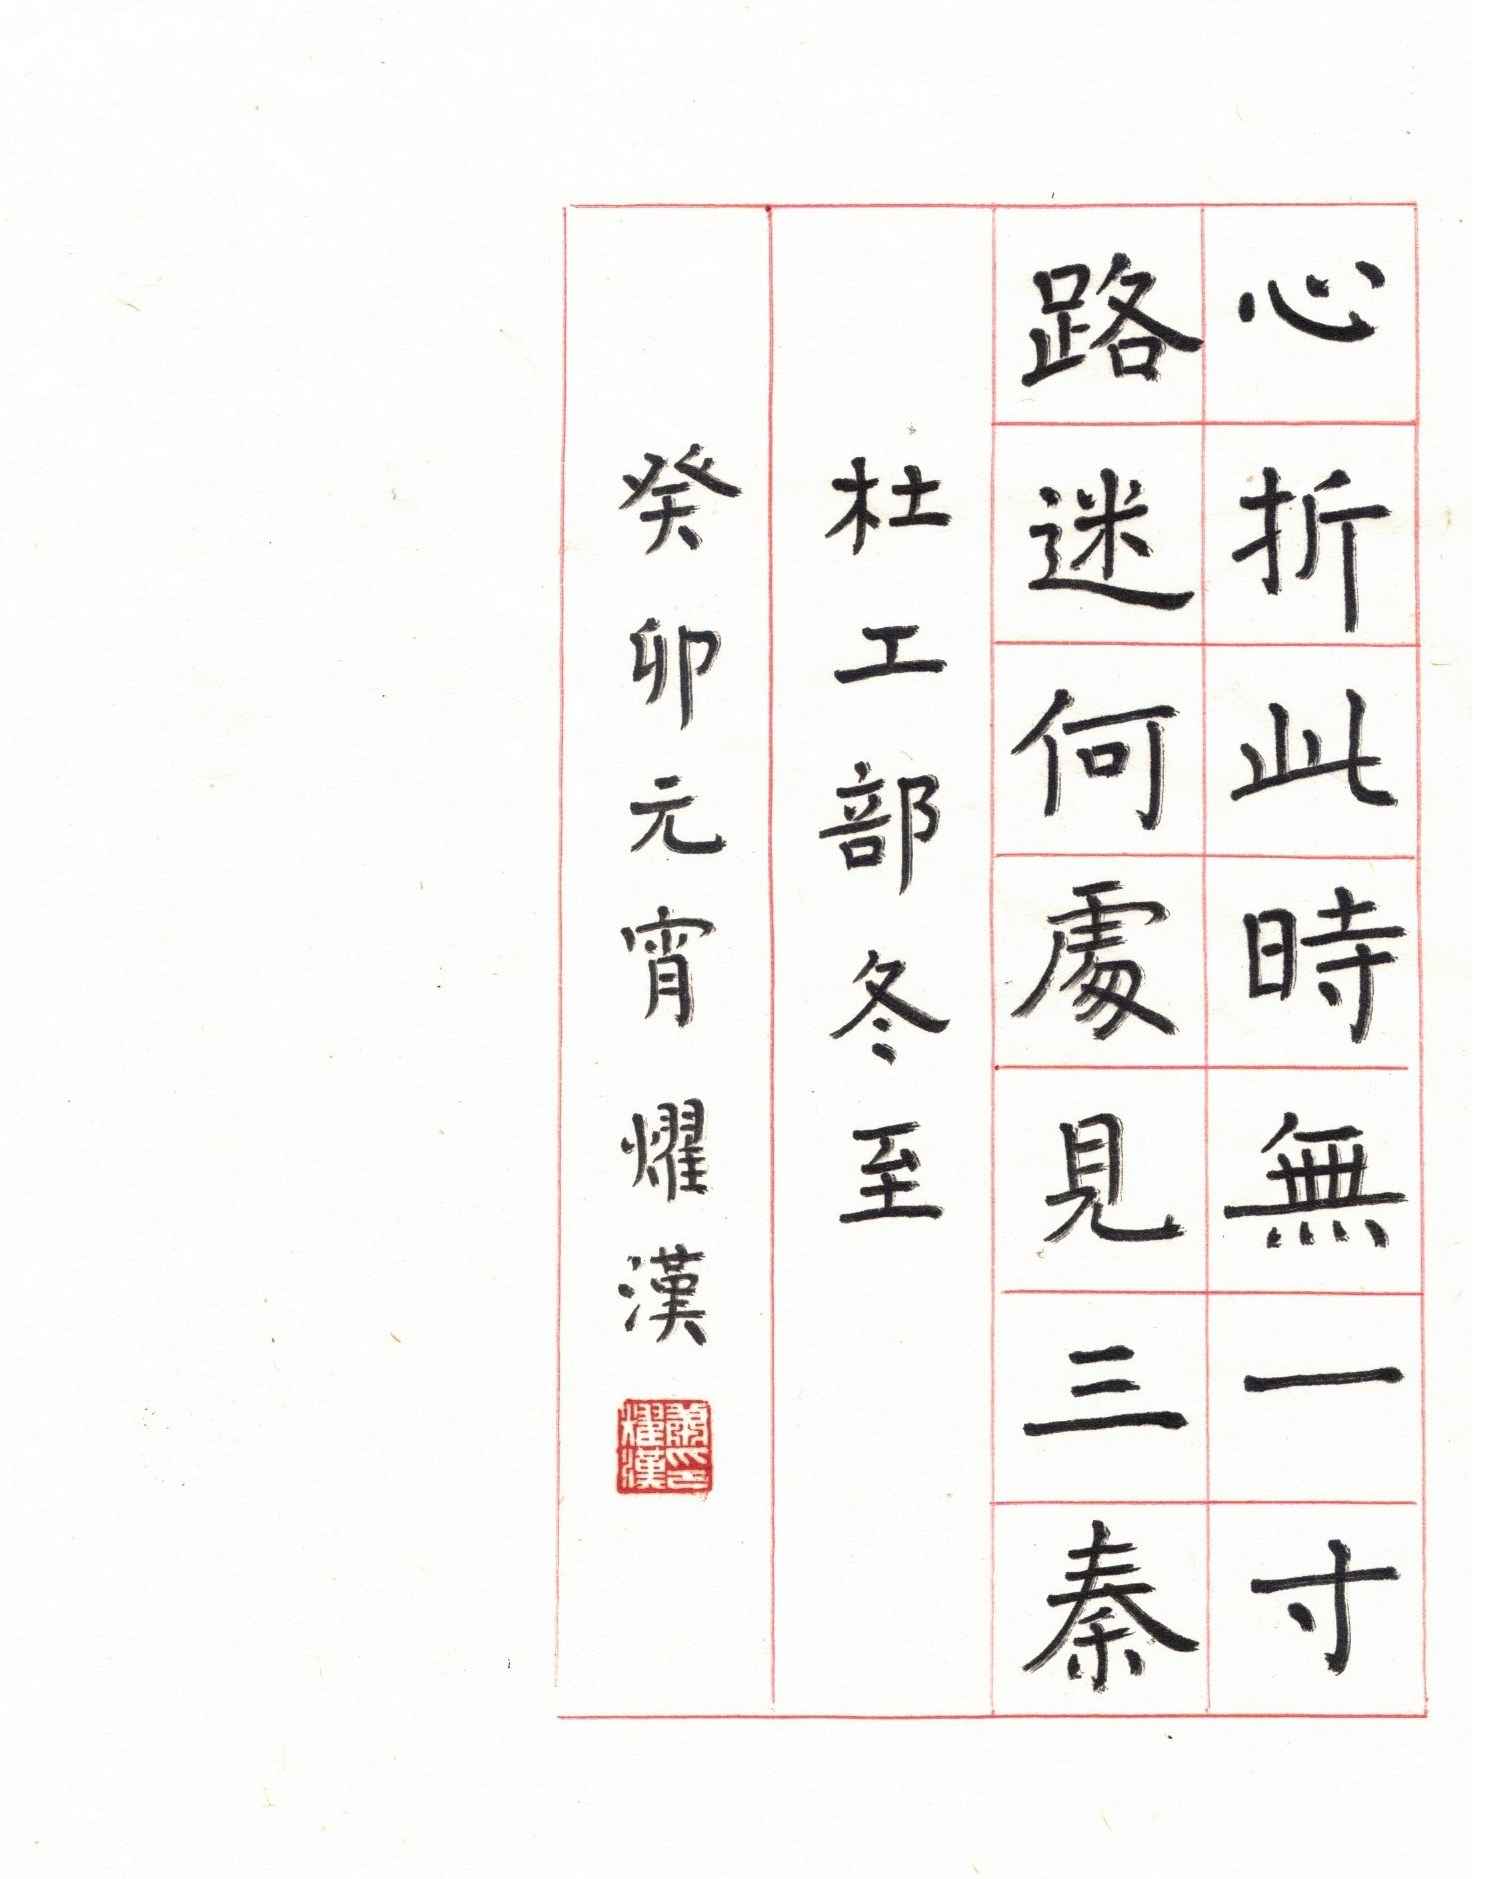 心折此時無一寸
路迷何處見三秦
杜工部冬至
癸卯元宵 耀漢